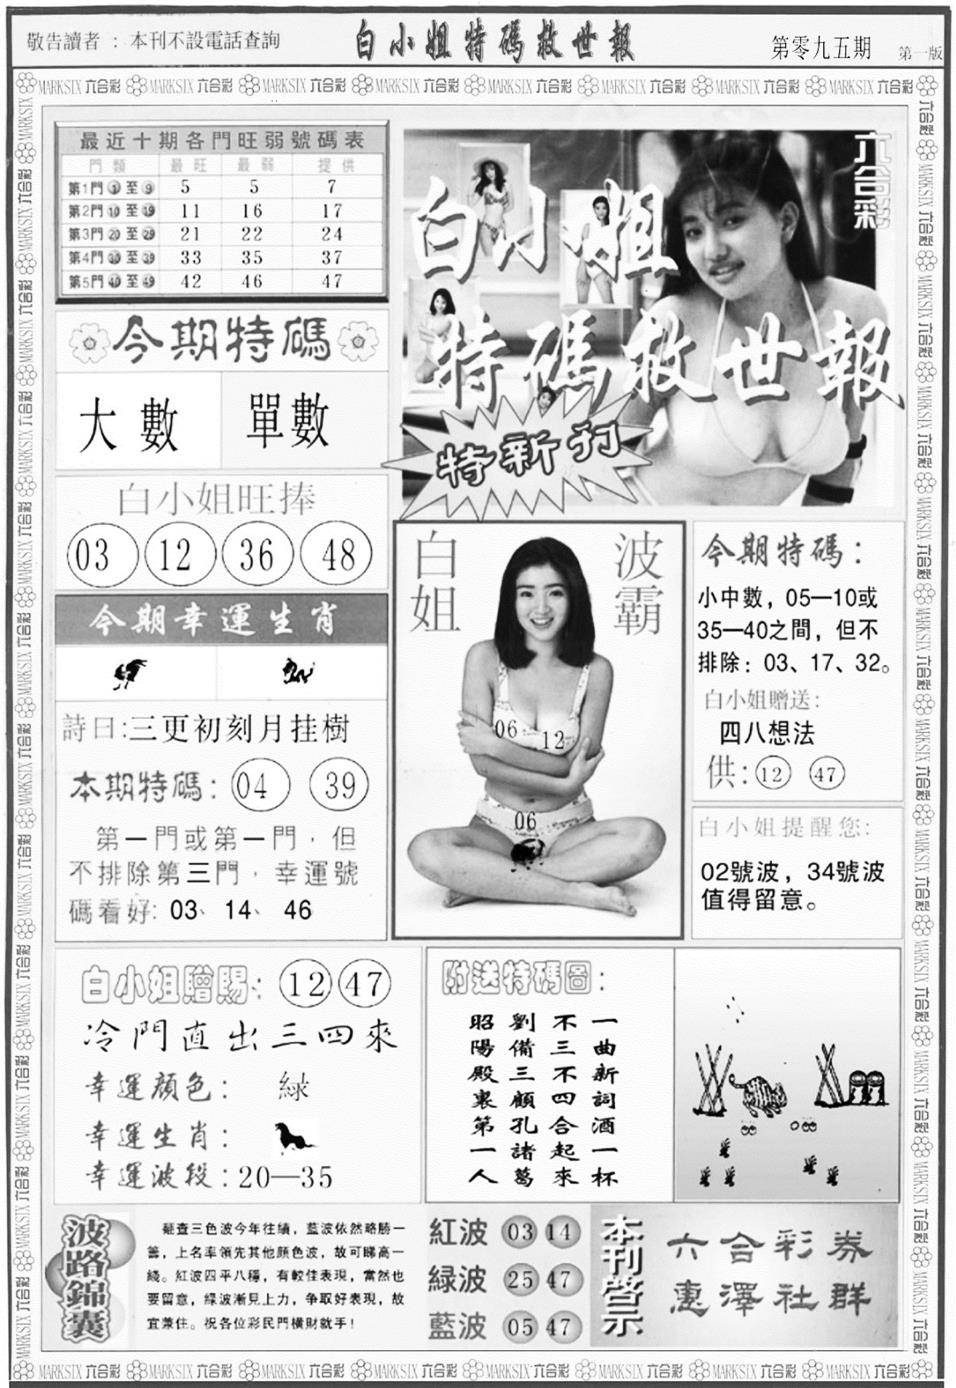 敬告讀者 ：本刊不設電話查詢
白小姐特碼救世報
第零九五期
第一版
MARKSIX 六合彩
最近十期各門旺弱號碼表
門類 最旺 最弱 提供
第1門 1 至 9 5 5 7
第2門 10 至 19 11 16 17
第3門 20 至 29 21 22 24
第4門 30 至 39 33 35 37
第5門 40 至 49 42 46 47
六合彩
白小姐
特碼救世報
特新刊
今期特碼
大數 單數
白小姐旺捧
03 12 36 48
今期幸運生肖
詩曰:三更初刻月挂樹
本期特碼: 04 39
第一門或第一門，但
不排除第三門，幸運號
碼看好: 03、14、46
白姐
波霸
06 12
06
今期特碼：
小中數，05—10或
35—40之間，但不
排除：03、17、32。
白小姐贈送:
四八想法
供: 12 47
白小姐提醒您:
02號波，34號波
值得留意。
白小姐贈賜: 12 47
冷門直出三四來
幸運顏色： 緑
幸運生肖：
幸運波段:20—35
附送特碼圖：
一曲新詞酒一杯
不三不四合起來
劉備三顧孔諸葛
昭陽殿裏第一人
波路錦囊
查三色波今年往績，藍波依然略勝一
籌，上名率領先其他顏色波，故可睇高一
綫。紅波四平八穩，有較佳表現，當然也
要留意，緑波漸見上力，争取好表現，故
宜兼住。祝各位彩民門橫財就手！
紅波 03 14
緑波 25 47
藍波 05 47
本刊警示
六合彩券
惠澤社群